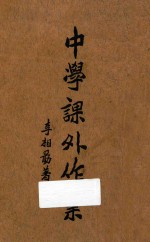 中學課外作業
李相勗著